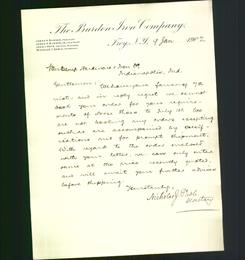 The Burden Iron Company,
Troy, N.Y. 9 Jan 1902
Hardware & Iron Co
Indianapolis, Ind.
Gentlemen: We have your favor of 7th
inst, and in reply regret we cannot
book your order for your require-
ments of horse shoes to July 1st. We
are not booking any orders excepting
such as are accompanied by specifi-
cations, but for prompt shipment.
With regard to the order enclosed
with your letter, we can only enter
same at the price recently quoted,
and will await your further advices
before shipping.
Yours truly,
Nicholas J.
Secretary